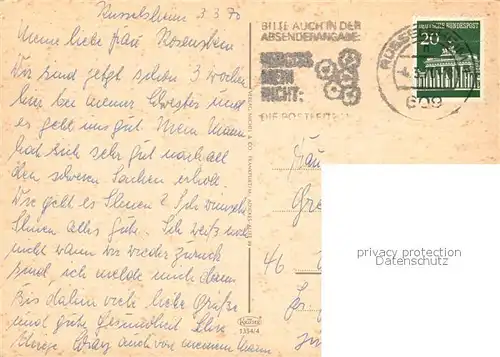 Rüsselsheim 3.3.70
Meine liebe Frau Rosenstein
Wir sind jetzt schon 3 Wochen
hier bei meiner Schwester und
es geht uns gut. Mein Mann
hat sich sehr gut nach all
den schweren Sachen erholt.
Wie geht es Ihnen? Ich wünsche
Ihnen alles gute. Ich weiß noch
nicht wann wir wieder zurück
sind, ich melde mich dann
Bis dahin viele liebe Grüße
und gute Gesundheit Ihre
auch von meinem Mann
BITTE AUCH IN DER
ABSENDERANGABE:
VERGISS
MEIN
NICHT:
DIE POSTLEITZAHL
DEUTSCHE BUNDESPOST
20
609
Frau
46
Krüger
1354/4
privacy protection
Datenschutz